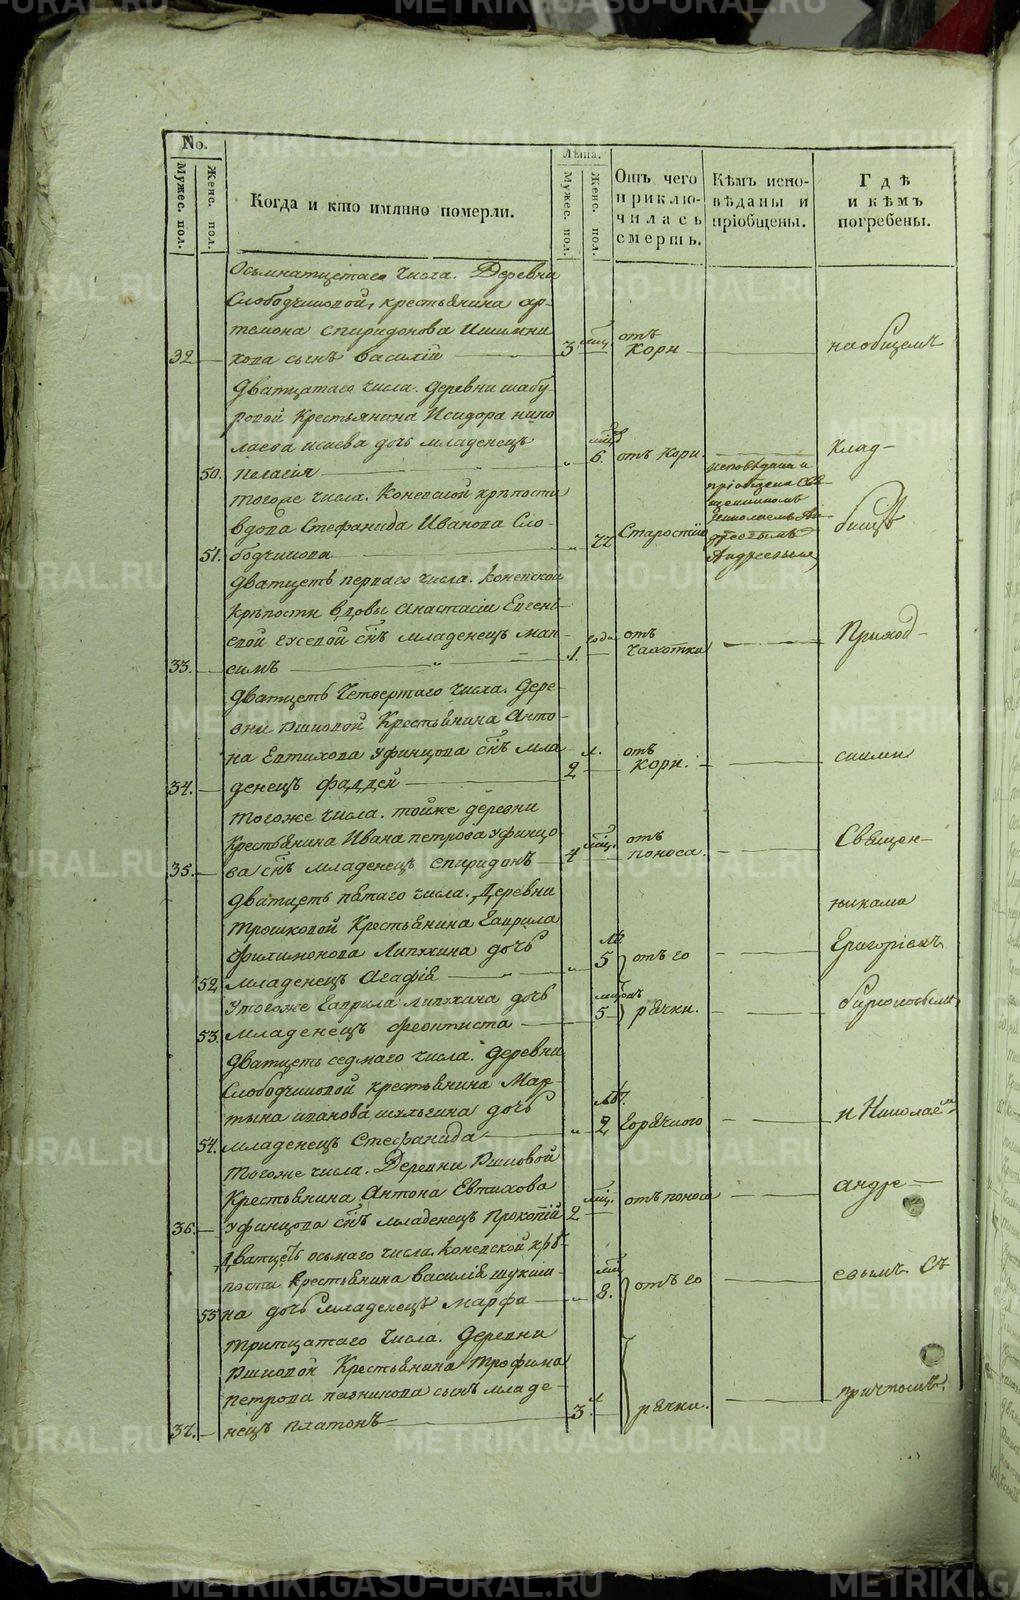 No.
Мужес. пол.
Женс. пол.
Когда и кто имянно померли.
Лѣта.
Мужес. пол.
Женс. пол.
Отъ чего
приклю-
чилась
смерть.
Кѣмъ испо-
вѣданы и
пріобщены.
Гдѣ
и кѣмъ
погребены.
Осьмнатцетаго числа. Деревни
Слободчиковой, крестьянина ар-
темона спиридонова
32 кова сынъ василій 3 мц. отъ кори наобщемъ
Дватцатаго числа. деревни шабу
ровой Крестьянина Исидора нико
лаева исаева дочь младенецъ
50. пелагія 6. мцов отъ кори. клад-
тогоже числа. Коневской крѣпости
вдова Стефанида Иванова Сло-
51. бодчикова 77 Старостію
исповѣдана и
пріобщена Свя-
щенникомъ
Николаемъ Ан-
Андреевымъ
бищѣ
дватцеть перваго числа. коневской
крѣпости вдовы анастасіи Евгень-
евой сынъ младенецъ мак-
33. симъ 1. года отъ чахотки Приход-
дватцеть Четвертаго числа. Дере-
вни Ршиовой Крестьянина Анто-
на Евтихова Уфинцова сынъ мла
34. денецъ фаддей 2 л. отъ кори. скими
тогоже числа. тойже деревни
Крестьянина Ивана петрова Уфинцо
35. ва сынъ младенецъ спиридонъ 4 мц. отъ поноса. Священ-
никами
дватцеть пятаго числа. Деревни
трошковой Крестьянина Гаврила
Филимонова Липихина дочь
52 младенецъ Агафія 5 лѣ отъ го Григоріемъ
Утогоже Гаврила липихина дочь
53. младенецъ феоктиста 5 мцовъ рячки. бирюковымъ
дватцеть седмаго числа. деревни
Слободчиковой крестьянина Мар-
тына иванова шульгина дочь
54. младенецъ Стефанида 2 лѣт. Горячкою и Николаемъ
тогоже числа. Деревни Ршиовой
Крестьянина Антона Евтихова
36. Уфинцова сынъ младенецъ Прокопій 2 мц. отъ поноса андре-
дватцеть осьмаго числа. Коневской крѣ-
пости крестьянина василія шукши-
53 на дочь младенецъ марфа 8. мц отъ го евымъ Съ
тритцатаго числа. деревни
Ршиовой Крестьянина трофима
петрова пазникова сынъ младе-
37. нецъ платонъ 3 л рячки. причтомъ.
METRIKI.GASO-URAL.RU